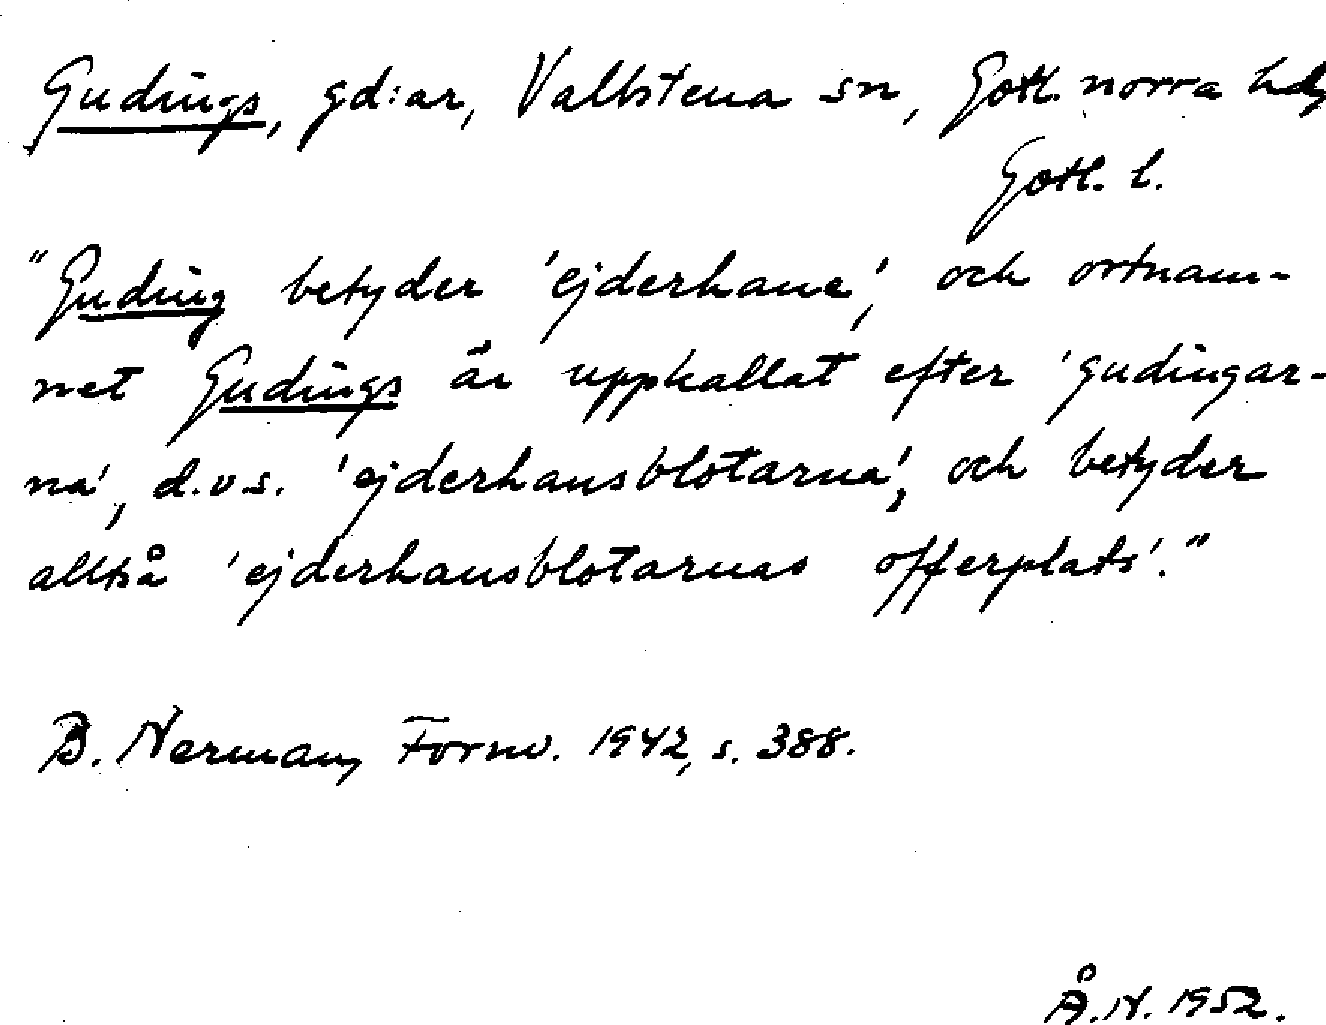 Gudings, gd:ar, Vallstena sn, Gotl. norra hd,
Gotl. l.
"Guding betyder 'ejderhane', och ortnam-
net Gudings är uppkallat efter 'gudingar-
na', d.v.s. 'ejderhansblotarna', och betyder
alltså 'ejderhansblotarnas offerplats'."
B. Nerman, Fornv. 1942, s. 388.
Å.N. 1952.